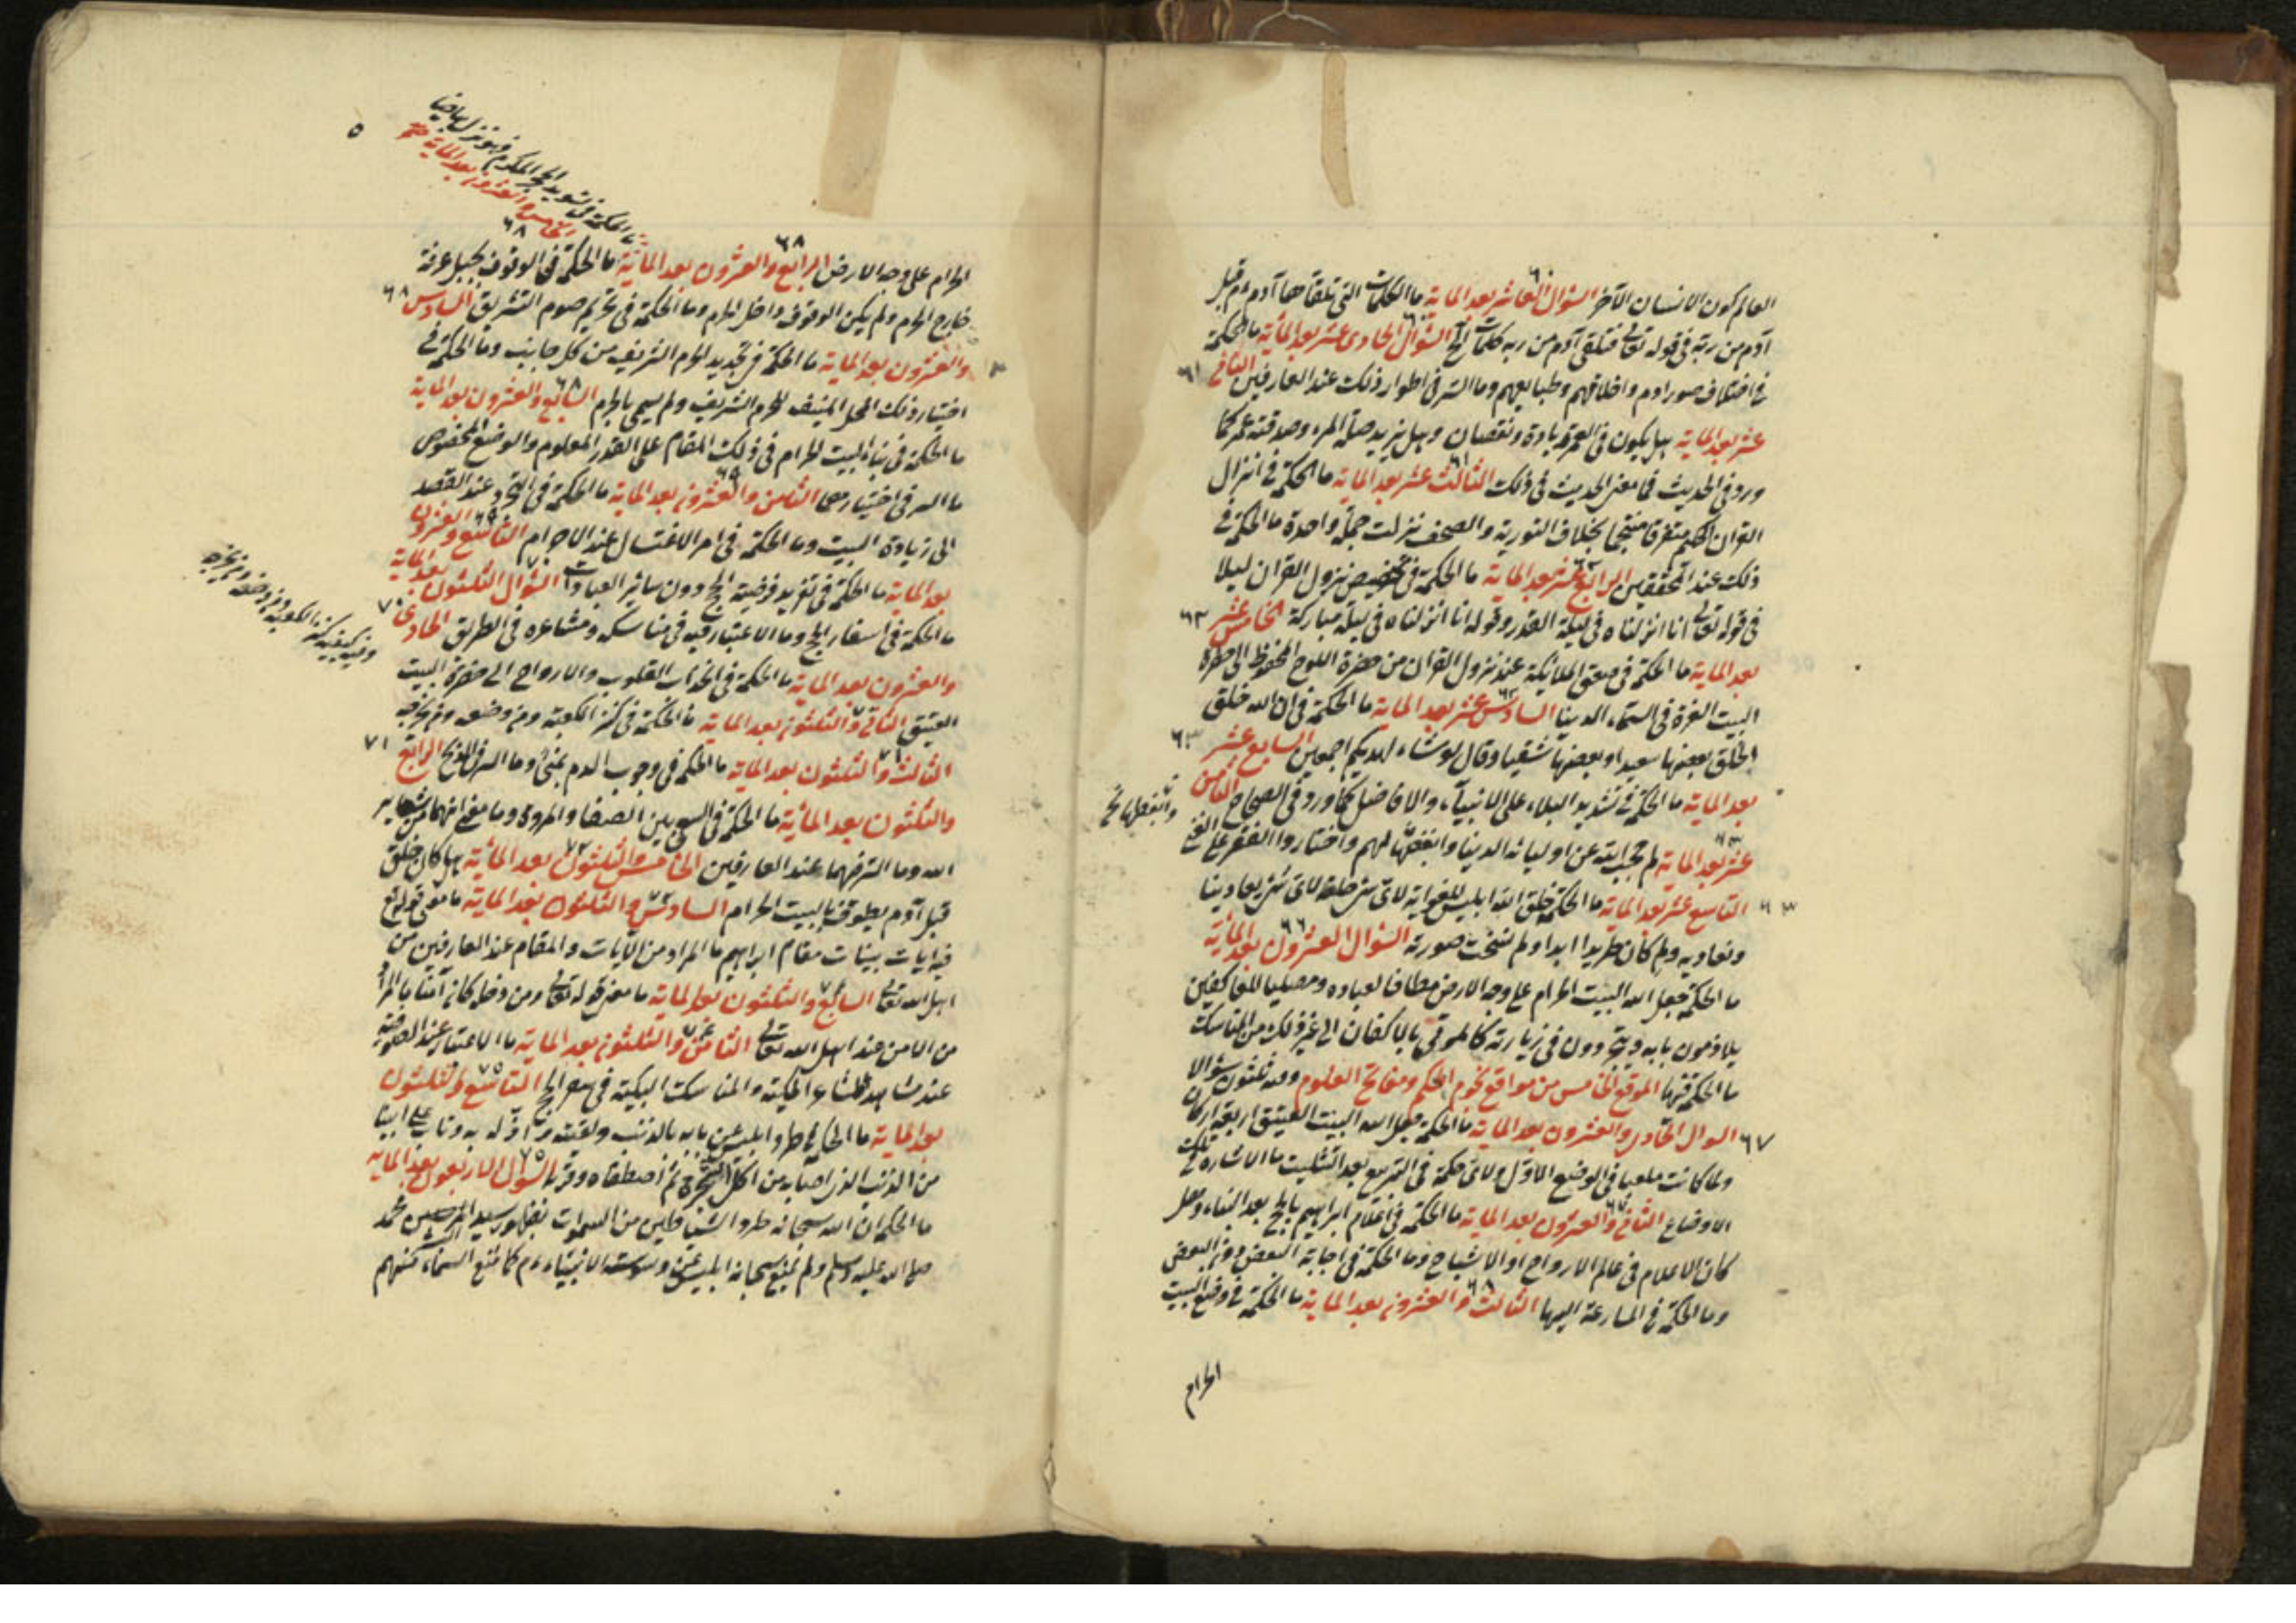 العالم كون الانسان الآخر السؤال العاشر بعد الماية ما الكلمات التي تلقاها آدم ام قبل
٦٠
آدم من ربه في قوله تعالى فتلقى آدم من ربه كلمات الخ السؤال الحادى عشر بعد الماية ما الحكمة
في اختلاف صور ادم واخلاقهم وطبايعهم وما السر في اطوار ذلك عند العارفين الثانى
٦١
عشر بعد الماية هل يكون في العمر زيادة ونقصان وهل يزيد صلة المرء وصدقته عمر كما
ورد في الحديث فما معنى الحديث في ذلك الثالث عشر بعد الماية ما الحكمة في انزال
القران الحكيم متفرقا منجما بخلاف التورية والصحف نزلت جملة واحدة ما الحكمة في
ذلك عند المحققين الرابع عشر بعد الماية ما الحكمة في تخصيص نزول القران ليلا
في قوله تعالى انا انزلناه في ليلة القدر وقوله انا انزلناه في ليلة مباركة الخامس عشر
٦٣
بعد الماية ما الحكمة في صعق الملائكة عند نزول القران من حضرة اللوح المحفوظ الى حضرة
البيت العزة في السماء الدنيا السادس عشر بعد الماية ما الحكمة في ان الله خلق
الخلق بعضها سعيدا وبعضها شقيا وقال لو شاء لهديكم اجمعين السابع عشر
٦٣
بعد الماية ما الحكمة في تشديد البلاء على الانبياء والافاضل كما ورد في الصحاح الثامن
عشر بعد الماية لم حجب الله عن اوليائه الدنيا وابغضها لهم واختاروا الفقر على الغنى
التاسع عشر بعد الماية ما الحكمة خلق الله ابليس للغواية لاى شئ خلقه لاى شئ يعادينا
٦٣
ونعاديه ولم كان طريدا ابدا ولم نسخت صورته السؤال العشرون بعد الماية
٦٦
ما الحكمة جعل الله البيت الحرام على وجه الارض مطافا لعباده ومصليا للعاكفين
يلازمون بابه ويتجردون في زيارته كالموتى بالاكفان الى غير ذلك من المناسك
ما الحكمة فيها الموقع الخامس من مواقع نجوم الحكم ومفاتح العلوم وفيه ثلثون سؤالا
السوال الحادى والعشرون بعد الماية ما الحكمة جعل الله البيت العتيق اربعة اركان
٦٧
ولما كانت في الوضع الاول ولاى حكمة في التربيع بعد التثليت ما الاشارة في تلك
الاوضاع الثانى والعشرون بعد الماية ما الحكمة في اعلام ابراهيم بالحج بعد البناء وهل
كان الاعلام في عالم الارواح او الاشباح وما الحكمة في اجابة البعض دون البعض
وما الحكمة في المسارعة اليها الثالث والعشرون بعد الماية ما الحكمة في وضع البيت
الحرام
٥
ما الحكمة في تسويد الحجر المكرم
الخامس والعشرون بعد الماية
الحرام على وجه الارض الرابع والعشرون بعد الماية ما الحكمة في الوقوف بجبل عرفة
٦٨
خارج الحرم ولم يكن الوقوف داخل الحرم وما الحكمة في تحريم صوم التشريق السادس
٦٨
والعشرون بعد الماية ما الحكمة في تحديد الحرم الشريف من كل جانب وما الحكمة في
اختيار ذلك المحل المنيف للحرم الشريف ولم يسمى بالحرم السابع والعشرون بعد الماية
ما الحكمة في بناء البيت الحرام في ذلك المقام على القدر المعلوم والوضع المخصوص
ما السر في اختيارهما الثامن والعشرون بعد الماية ما الحكمة في التجرد عند القصد
الى زيارة البيت وما الحكمة في امر الاغتسال عند الاحرام التاسع والعشرون
بعد الماية ما الحكمة في تفريد فرضية الحج دون سائر العبادات السؤال الثلثون بعد الماية
ما الحكمة في اسفار الحج وما الاعتبار فيه في مناسكه ومشاعره في الطريق الحادى
٧٠
والعشرون بعد الماية ما الحكمة في انجذاب القلوب والارواح الى حضرة البيت
العتيق الثانى والثلثون بعد الماية ما الحكمة في كنز الكعبة ومن وضعه ومن يخرجه
الثالث والثلثون بعد الماية ما الحكمة في وجوب الدم بمنى وما السر في الذبح الرابع
٧١
والثلثون بعد الماية ما الحكمة في السعى بين الصفا والمروة وما معنى انهما من شعاير
الله وما السر فيهما عند العارفين الخامس والثلثون بعد الماية هل كان خلق
قبل آدم يطوف بالبيت الحرام السادس والثلثون بعد الماية ما معنى قوله تع
فيه ايات بينات مقام ابراهيم ما المراد من الآيات والمقام عند العارفين من
اهل الله تعالى السابع والثلثون بعد الماية ما معنى قوله تعالى ومن دخله كان آمنا ما المراد
من الامن عند اهل الله تعالى الثامن والثلثون بعد الماية ما الاعتبار عند الصوفية
عند مشاهد المشاعر المكية والمناسك البكية في معراج التاسع والثلثون
بعد الماية ما الحكمة في طرد ابليس عن بابه بالذنب ولعنته وتاب على ابينا
من الذنب الذى اصابه من اكل الشجرة ثم اصطفاه السؤال الاربعون بعد الماية
ما الحكم ان الله سبحانه طرد الشياطين من السموات بظهور سيد المرسلين محمد
صلى الله عليه وسلم ولم يمنع سبحانه ابليس عن وسوسته الانبياء كما منع السماء منهم